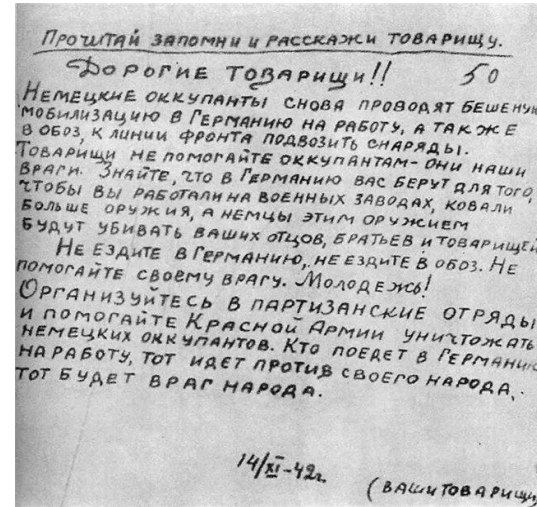 Прочитай запомни и расскажи товарищу.
Дорогие товарищи!! 50
Немецкие оккупанты снова проводят бешеную
мобилизацию в Германию на работу, а также
в обоз, к линии фронта подвозить снаряды.
Товарищи не помогайте оккупантам - они наши
враги. Знайте, что в Германию вас берут для того,
чтобы вы работали на военных заводах, ковали
больше оружия, а немцы этим оружием
будут убивать ваших отцов, братьев и товарищей
Не ездите в Германию, не ездите в обоз. Не
помогайте своему врагу. Молодежь!
Организуйтесь в партизанские отряды
и помогайте Красной Армии уничтожать
немецких оккупантов. Кто поедет в Германию
на работу, тот идет против своего народа,
тот будет враг народа.
14/XI-42г.
(ваши товарищи